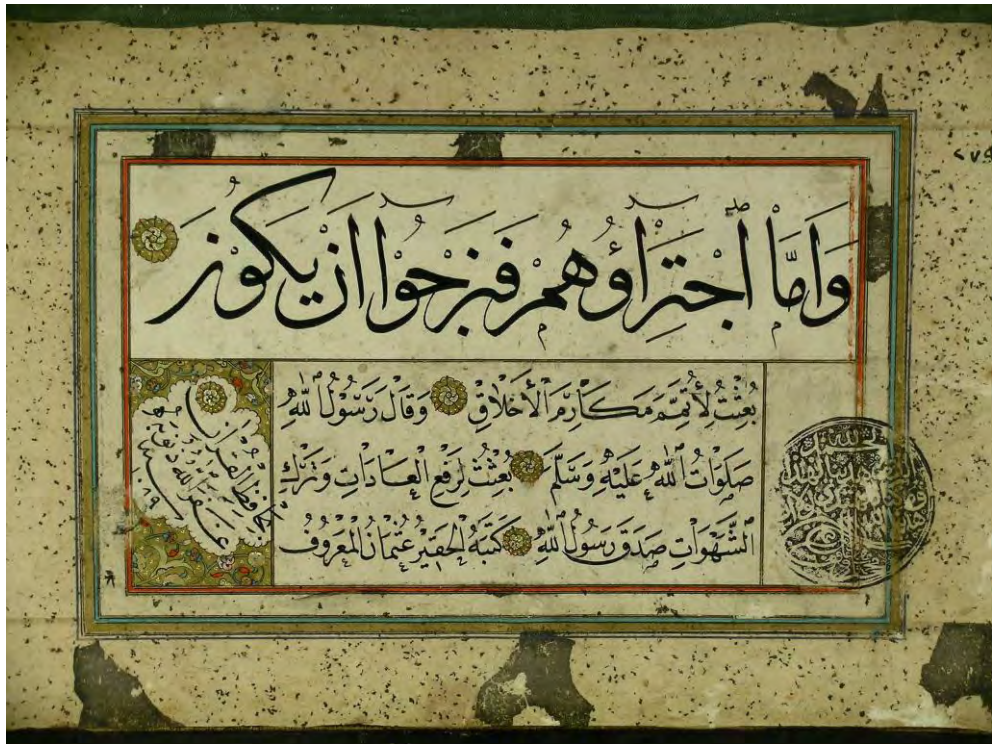 ٢٧٩
وَاَمَّا اجْتِرَاؤُهُمْ فَنَرْجُوا اَنْ يَكُوْنَ
بُعِثْتُ لِأُتَمِّمَ مَكَارِمَ الْأَخْلَاقِ وَقَالَ رَسُولُ اللّٰهِ
صَلَوَاتُ اللّٰهِ عَلَيْهِ وَسَلَّمَ بُعِثْتُ لِرَفْعِ الْعَادَاتِ وَتَرْكِ
الشَّهَوَاتِ صَدَقَ رَسُولُ اللّٰهِ كَتَبَهُ الْحَقِيرُ عُثْمَانُ الْمَعْرُوفُ
بِحَافِظِ الْقُرْآنِ
غَفَرَ اللّٰهُ ذُنُوبَهُ